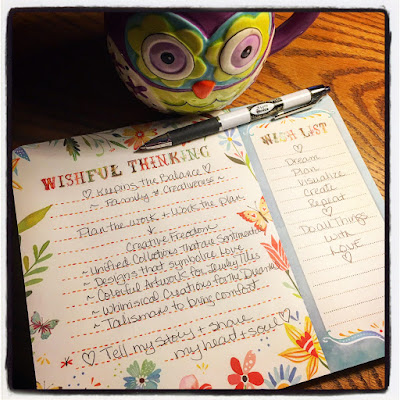 WISHFUL THINKING
♡ Keeping The Balance ♡
~ Family + Creativeness ~
Plan the work + Work the Plan
↓
Creative Freedom
~ Unified Collections that are Sentimental
~ Designs that symbolize Love
~ Colorful Artworks for Jewelry Tiles
~ Whimsical Creations for the Dreamer
~ Talismans to bring comfort
♡ Tell my story + share
my head + soul ♡
WISH LIST
♡
Dream
Plan
Visualize
Create
Repeat
♡
Do All Things
with
LOVE
♡